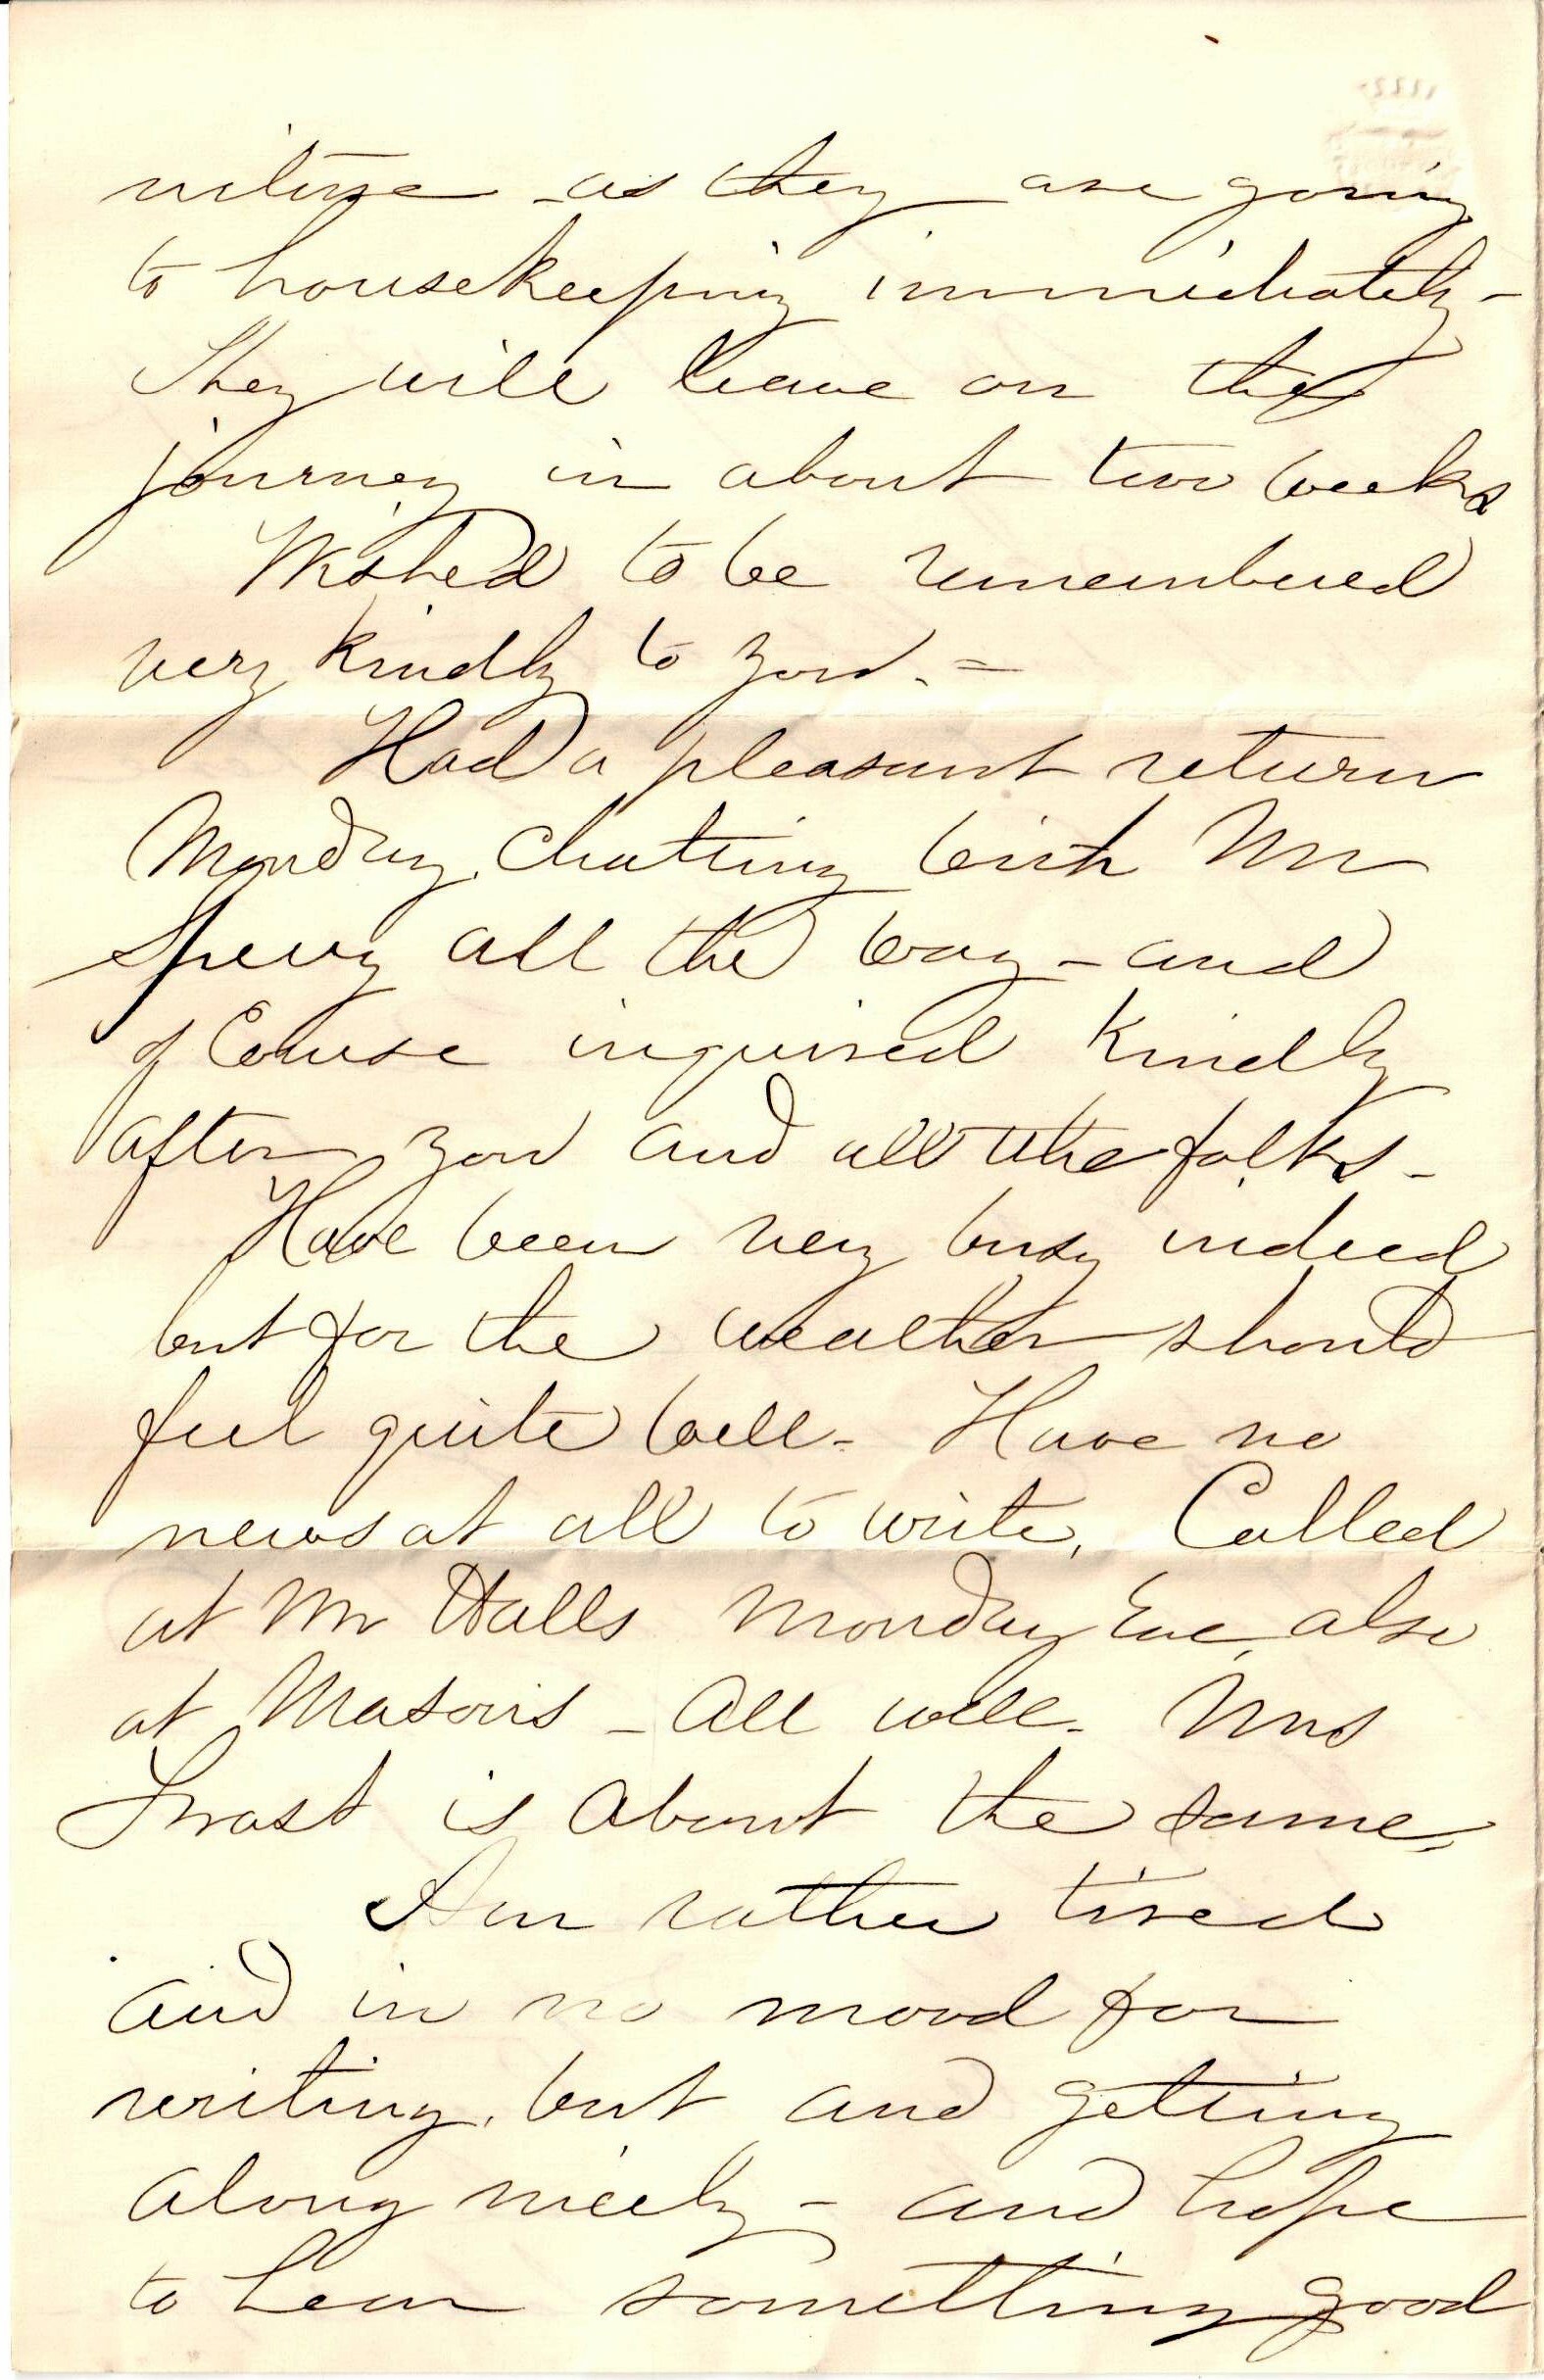 as they are going
to housekeeping immediately -
They will leave on the
journey in about two weeks
Wished to be remembered
very kindly to you. =
Had a pleasant return
Monday, chatting with Mr
Spevy all the way - and
of Course inquired kindly
after you and all the folks -
Have been very busy indeed
but for the weather should
feel quite well - Have no
news at all to write, Called
at Mr Halls Monday Eve, also
at Masons - all well. Mrs
is about the same,
Am rather tired
and in no mood for
writing, but and getting
along nicely - and hope
to hear something good